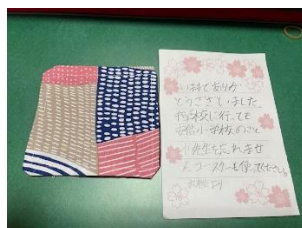 いままでありが
とうございました。
転校に行っても
小学校のこと
先生を忘れませ
ん。コースターを使ってください。